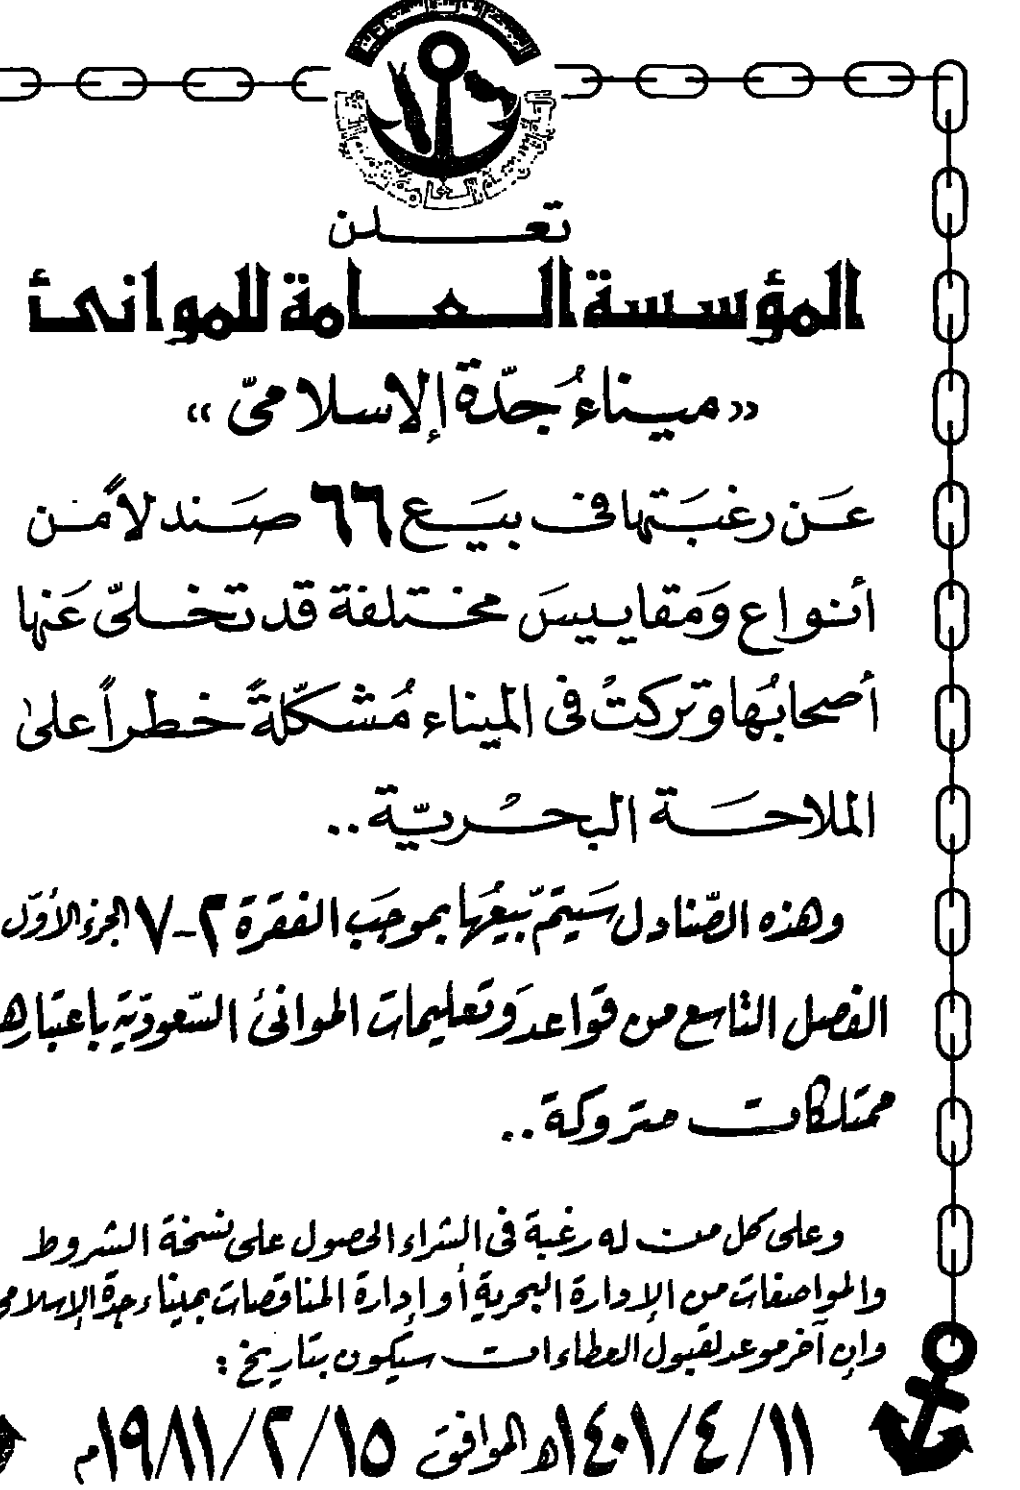 تعلن
المؤسسة العامة للموانئ
«ميناءُ جدّة الإسلامىّ»
عَن رغبَتها فى بيَع ٦٦ صَندلاً من
أنواع وَمَقاييسَ مختلفة قد تخلىّ عَنها
أصحابُها وتركتُ فى الميناء مُشكّلةً خطراً على
الملاحَة البحُريّة ..
وهذه الصّنادل سَيتمّ بَيعُها بموجَب الفقرة ٢-٧ الجزء الأوّل
الفصل التاسع من قواعدَ وتعليمات الموانئ السّعوديّة باعتباره
ممتلكات متروكة ..
وعلى كل من له رغبة فى الشراء الحصول على نسخة الشروط
والمواصفات من الإدارة البحرية أو إدارة المناقصات بميناء جدّة الإسلامى
وإن آخر موعد لقبول العطاءات سيكون بتاريخ :
١١/٤/١٤٠١هـ الموافق ١٥/٢/١٩٨١م